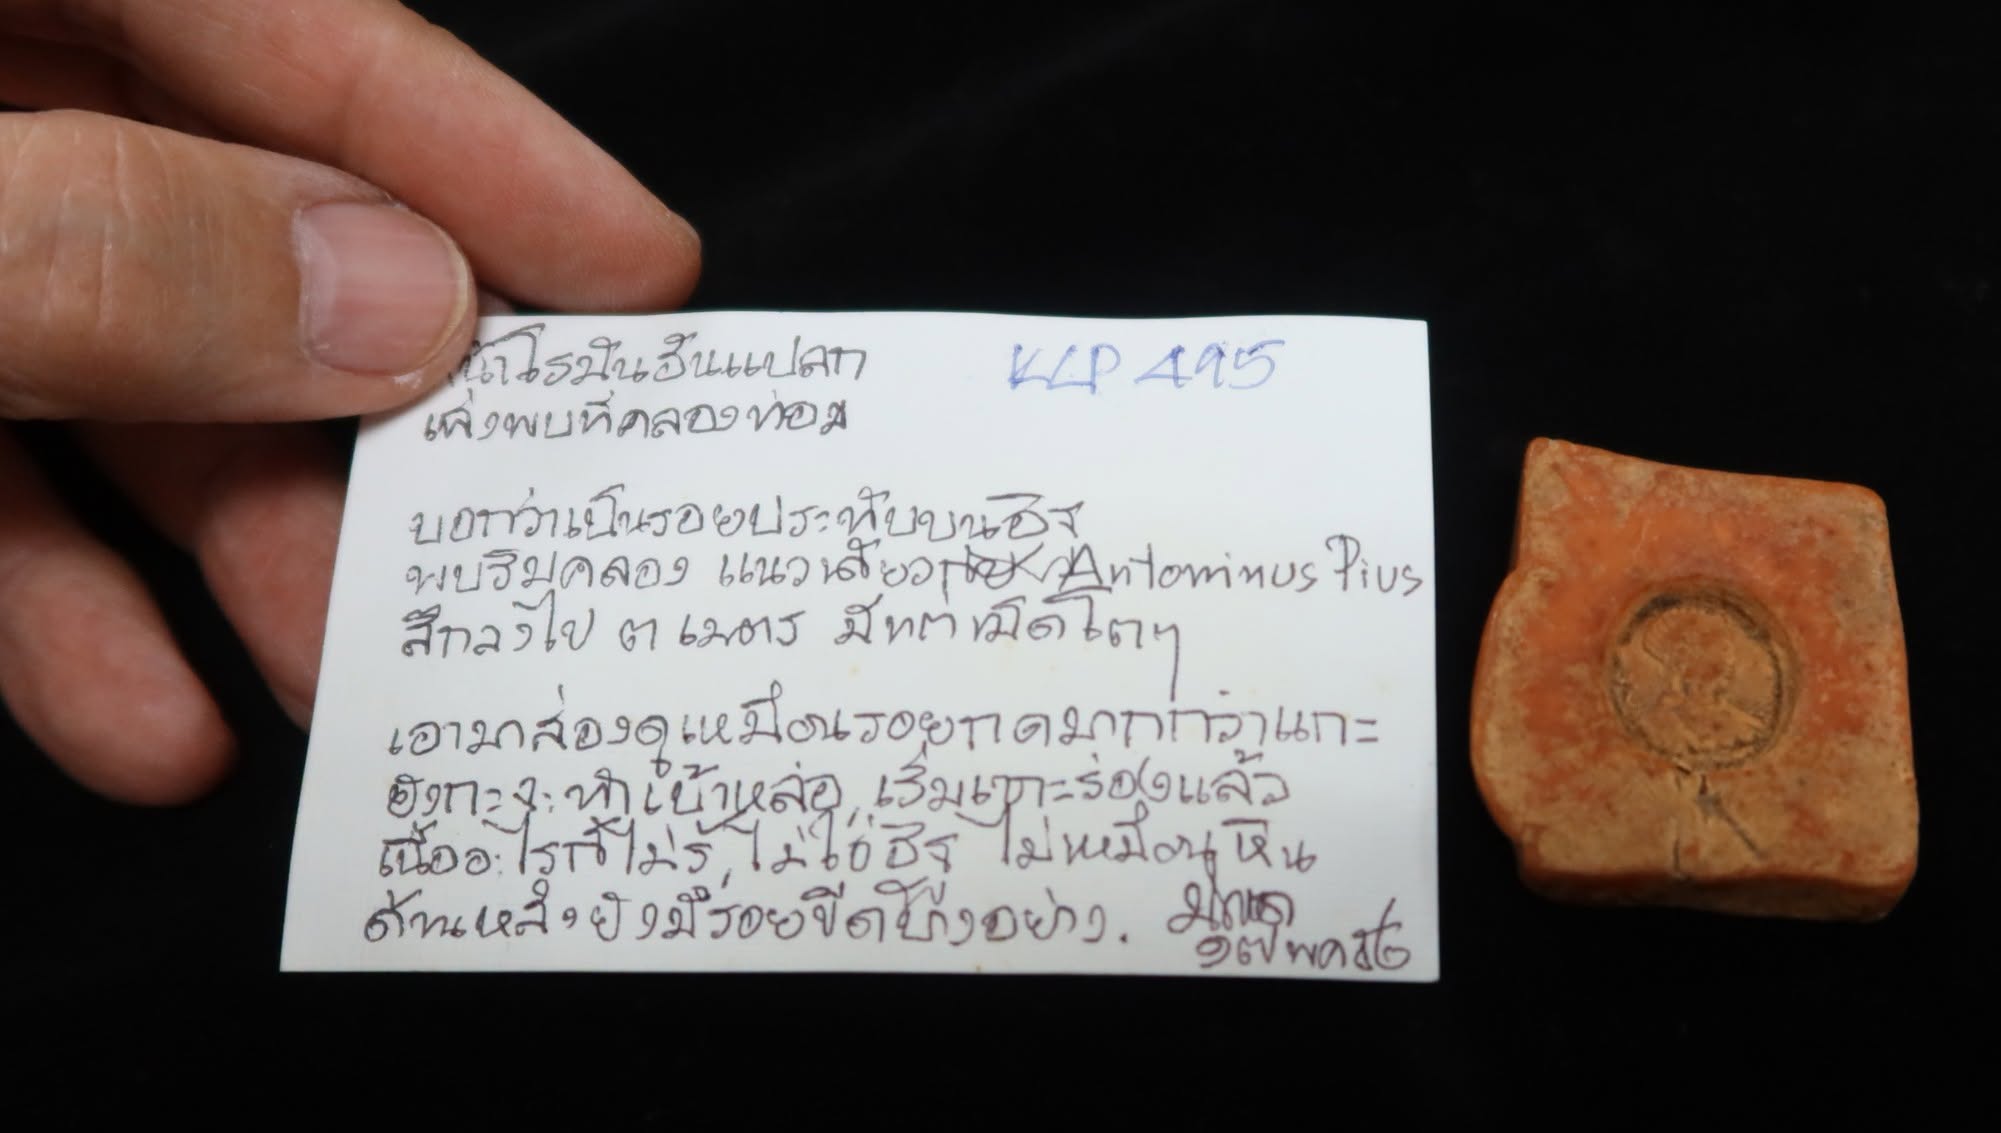 หน้าโรมันอันแปลก
KLP 495
เพิ่งพบที่คลองท่อม
บอกว่าเป็นรอยประทับบนอิฐ
พบริมคลอง แนวเดียวกับ Antominus Pius
ลึกลงไป ๓ เมตร มี เม็ดโตๆ
เอามาส่องดูเหมือนรอยกดมากกว่าแกะ
คงกะจะทำเบ้าหล่อ, เริ่มเซาะร่องแล้ว
เนื้ออะไรก็ไม่รู้, ไม่ใช่อิฐ ไม่เหมือนหิน
ด้านหลังยังมีรอยขีดบางอย่าง.
๑๗ พค